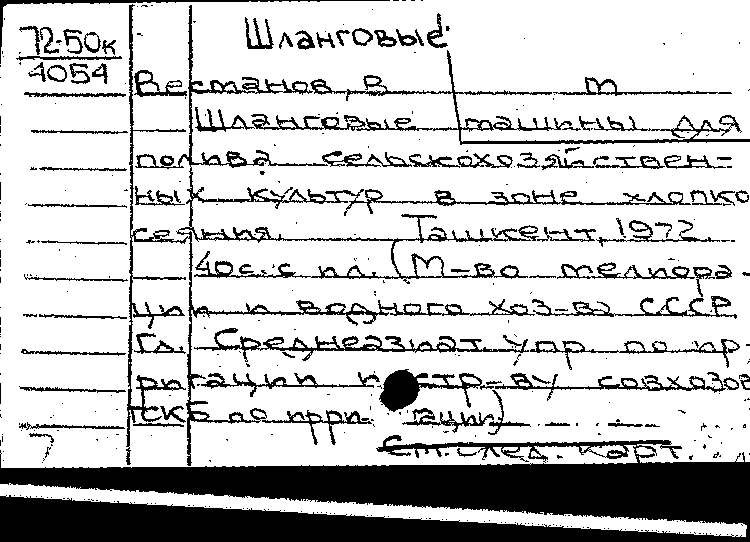 Шланговые
72-50к
4054
Вестанов, В m
Шланговые машины для
полива сельскохозяйствен-
ных культур в зоне хлопко
сеяния. Ташкент, 1972.
40с. с ил. (М-во мелиора-
ции и водного хоз-ва СССР
Гл. Среднеазиат. упр. по ир-
ригации и стр-ву совхозов
ГСКБ по ирригации)
См. след. карт.
7